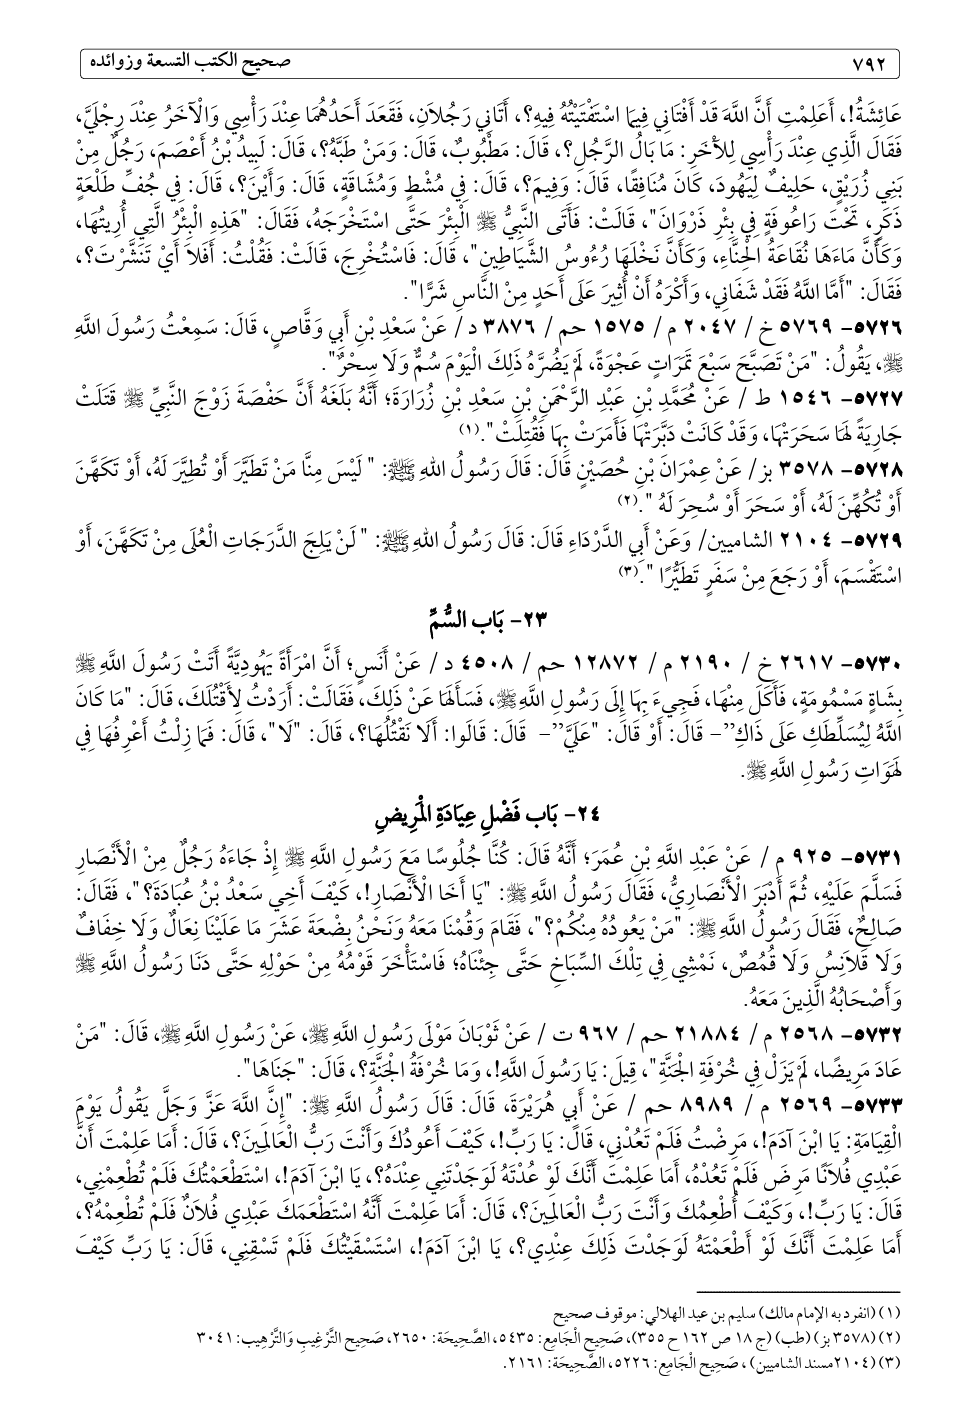 ٧٩٢ صحيح الكتب التسعة وزوائده
عَائِشَةُ!، أَعَلِمْتِ أَنَّ اللَّهَ قَدْ أَفْتَانِي فِيمَا اسْتَفْتَيْتُهُ فِيهِ؟، أَتَانِي رَجُلَانِ، فَقَعَدَ أَحَدُهُمَا عِنْدَ رَأْسِي وَالْآخَرُ عِنْدَ رِجْلَيَّ،
فَقَالَ الَّذِي عِنْدَ رَأْسِي لِلْآخَرِ: مَا بَالُ الرَّجُلِ؟، قَالَ: مَطْبُوبٌ، قَالَ: وَمَنْ طَبَّهُ؟، قَالَ: لَبِيدُ بْنُ أَعْصَمَ، رَجُلٌ مِنْ
بَنِي زُرَيْقٍ، حَلِيفٌ لِيَهُودَ، كَانَ مُنَافِقًا، قَالَ: وَفِيمَ؟، قَالَ: فِي مُشْطٍ وَمُشَاقَةٍ، قَالَ: وَأَيْنَ؟، قَالَ: فِي جُفِّ طَلْعَةٍ
ذَكَرٍ، تَحْتَ رَاعُوفَةٍ فِي بِئْرِ ذَرْوَانَ"، قَالَتْ: فَأَتَى النَّبِيُّ ﷺ الْبِئْرَ حَتَّى اسْتَخْرَجَهُ، فَقَالَ: "هَذِهِ الْبِئْرُ الَّتِي أُرِيتُهَا،
وَكَأَنَّ مَاءَهَا نُقَاعَةُ الْحِنَّاءِ، وَكَأَنَّ نَخْلَهَا رُءُوسُ الشَّيَاطِينِ"، قَالَ: فَاسْتُخْرِجَ، قَالَتْ: فَقُلْتُ: أَفَلَا أَيْ تَنَشَّرْتَ؟،
فَقَالَ: "أَمَّا اللَّهُ فَقَدْ شَفَانِي، وَأَكْرَهُ أَنْ أُثِيرَ عَلَى أَحَدٍ مِنْ النَّاسِ شَرًّا".
٥٧٢٦- ٥٧٦٩ خ / ٢٠٤٧ م/ ١٥٧٥ حم / ٣٨٧٦ د / عَنْ سَعْدِ بْنِ أَبِي وَقَّاصٍ، قَالَ: سَمِعْتُ رَسُولَ اللَّهِ
ﷺ، يَقُولُ: "مَنْ تَصَبَّحَ سَبْعَ تَمَرَاتٍ عَجْوَةً، لَمْ يَضُرَّهُ ذَلِكَ الْيَوْمَ سُمٌّ وَلَا سِحْرٌ".
٥٧٢٧- ١٥٤٦ ط / عَنْ مُحَمَّدِ بْنِ عَبْدِ الرَّحْمَنِ بْنِ سَعْدِ بْنِ زُرَارَةَ؛ أَنَّهُ بَلَغَهُ أَنَّ حَفْصَةَ زَوْجَ النَّبِيِّ ﷺ قَتَلَتْ
جَارِيَةً لَهَا سَحَرَتْهَا، وَقَدْ كَانَتْ دَبَّرَتْهَا فَأَمَرَتْ بِهَا فَقُتِلَتْ".(١)
٥٧٢٨- ٣٥٧٨ بز/ عَنْ عِمْرَانَ بْنِ حُصَيْنٍ قَالَ: قَالَ رَسُولُ اللهِ ﷺ: " لَيْسَ مِنَّا مَنْ تَطَيَّرَ أَوْ تُطُيِّرَ لَهُ، أَوْ تَكَهَّنَ
أَوْ تُكُهِّنَ لَهُ، أَوْ سَحَرَ أَوْ سُحِرَ لَهُ ".(٢)
٥٧٢٩- ٢١٠٤ الشاميين/ وَعَنْ أَبِي الدَّرْدَاءِ قَالَ: قَالَ رَسُولُ اللهِ ﷺ: " لَنْ يَلِجَ الدَّرَجَاتِ الْعُلَى مِنْ تَكَهَّنَ، أَوْ
اسْتَقْسَمَ، أَوْ رَجَعَ مِنْ سَفَرٍ تَطَيُّرًا ".(٣)
٢٣- بَاب السُّمِّ
٥٧٣٠- ٢٦١٧ خ / ٢١٩٠ م/ ١٢٨٧٢ حم / ٤٥٠٨ د/ عَنْ أَنَسٍ؛ أَنَّ امْرَأَةً يَهُودِيَّةً أَتَتْ رَسُولَ اللَّهِ ﷺ
بِشَاةٍ مَسْمُومَةٍ، فَأَكَلَ مِنْهَا، فَجِيءَ بِهَا إِلَى رَسُولِ اللَّهِ ﷺ، فَسَأَلَهَا عَنْ ذَلِكَ، فَقَالَتْ: أَرَدْتُ لِأَقْتُلَكَ، قَالَ: "مَا كَانَ
اللَّهُ لِيُسَلِّطَكِ عَلَى ذَاكِ"- قَالَ: أَوْ قَالَ: "عَلَيَّ"- قَالَ: قَالُوا: أَلَا نَقْتُلُهَا؟، قَالَ: "لَا"، قَالَ: فَمَا زِلْتُ أَعْرِفُهَا فِي
لَهَوَاتِ رَسُولِ اللَّهِ ﷺ.
٢٤- بَاب فَضْلِ عِيَادَةِ الْمَرِيضِ
٥٧٣١- ٩٢٥ م / عَنْ عَبْدِ اللَّهِ بْنِ عُمَرَ؛ أَنَّهُ قَالَ: كُنَّا جُلُوسًا مَعَ رَسُولِ اللَّهِ ﷺ إِذْ جَاءَهُ رَجُلٌ مِنْ الْأَنْصَارِ
فَسَلَّمَ عَلَيْهِ، ثُمَّ أَدْبَرَ الْأَنْصَارِيُّ، فَقَالَ رَسُولُ اللَّهِ ﷺ: "يَا أَخَا الْأَنْصَارِ!، كَيْفَ أَخِي سَعْدُ بْنُ عُبَادَةَ؟ "، فَقَالَ:
صَالِحٌ، فَقَالَ رَسُولُ اللَّهِ ﷺ: "مَنْ يَعُودُهُ مِنْكُمْ؟"، فَقَامَ وَقُمْنَا مَعَهُ وَنَحْنُ بِضْعَةَ عَشَرَ مَا عَلَيْنَا نِعَالٌ وَلَا خِفَافٌ
وَلَا قَلَانِسُ وَلَا قُمُصٌ، نَمْشِي فِي تِلْكَ السِّبَاخِ حَتَّى جِئْنَاهُ؛ فَاسْتَأْخَرَ قَوْمُهُ مِنْ حَوْلِهِ حَتَّى دَنَا رَسُولُ اللَّهِ ﷺ
وَأَصْحَابُهُ الَّذِينَ مَعَهُ.
٥٧٣٢- ٢٥٦٨ م / ٢١٨٨٤ حم / ٩٦٧ ت / عَنْ ثَوْبَانَ مَوْلَى رَسُولِ اللَّهِ ﷺ، عَنْ رَسُولِ اللَّهِ ﷺ، قَالَ: "مَنْ
عَادَ مَرِيضًا، لَمْ يَزَلْ فِي خُرْفَةِ الْجَنَّةِ"، قِيلَ: يَا رَسُولَ اللَّهِ!، وَمَا خُرْفَةُ الْجَنَّةِ؟، قَالَ: "جَنَاهَا".
٥٧٣٣- ٢٥٦٩ م / ٨٩٨٩ حم / عَنْ أَبِي هُرَيْرَةَ، قَالَ: قَالَ رَسُولُ اللَّهِ ﷺ: "إِنَّ اللَّهَ عَزَّ وَجَلَّ يَقُولُ يَوْمَ
الْقِيَامَةِ: يَا ابْنَ آدَمَ!، مَرِضْتُ فَلَمْ تَعُدْنِي، قَالَ: يَا رَبِّ!، كَيْفَ أَعُودُكَ وَأَنْتَ رَبُّ الْعَالَمِينَ؟، قَالَ: أَمَا عَلِمْتَ أَنَّ
عَبْدِي فُلَانًا مَرِضَ فَلَمْ تَعُدْهُ، أَمَا عَلِمْتَ أَنَّكَ لَوْ عُدْتَهُ لَوَجَدْتَنِي عِنْدَهُ؟، يَا ابْنَ آدَمَ!، اسْتَطْعَمْتُكَ فَلَمْ تُطْعِمْنِي،
قَالَ: يَا رَبِّ!، وَكَيْفَ أُطْعِمُكَ وَأَنْتَ رَبُّ الْعَالَمِينَ؟، قَالَ: أَمَا عَلِمْتَ أَنَّهُ اسْتَطْعَمَكَ عَبْدِي فُلَانٌ فَلَمْ تُطْعِمْهُ؟،
أَمَا عَلِمْتَ أَنَّكَ لَوْ أَطْعَمْتَهُ لَوَجَدْتَ ذَلِكَ عِنْدِي؟، يَا ابْنَ آدَمَ!، اسْتَسْقَيْتُكَ فَلَمْ تَسْقِنِي، قَالَ: يَا رَبِّ كَيْفَ
(١) (انفرد به الإمام مالك) سليم بن عيد الهلالي: موقوف صحيح
(٢) (٣٥٧٨ بز) (طب) (ج ١٨ ص ١٦٢ ح ٣٥٥)، صَحِيح الْجَامِع: ٥٤٣٥، الصَّحِيحَة: ٢٦٥٠، صَحِيح التَّرْغِيبِ وَالتَّرْهِيب: ٣٠٤١
(٣) (٢١٠٤مسند الشاميين) ، صَحِيح الْجَامِع: ٥٢٢٦، الصَّحِيحَة: ٢١٦١.